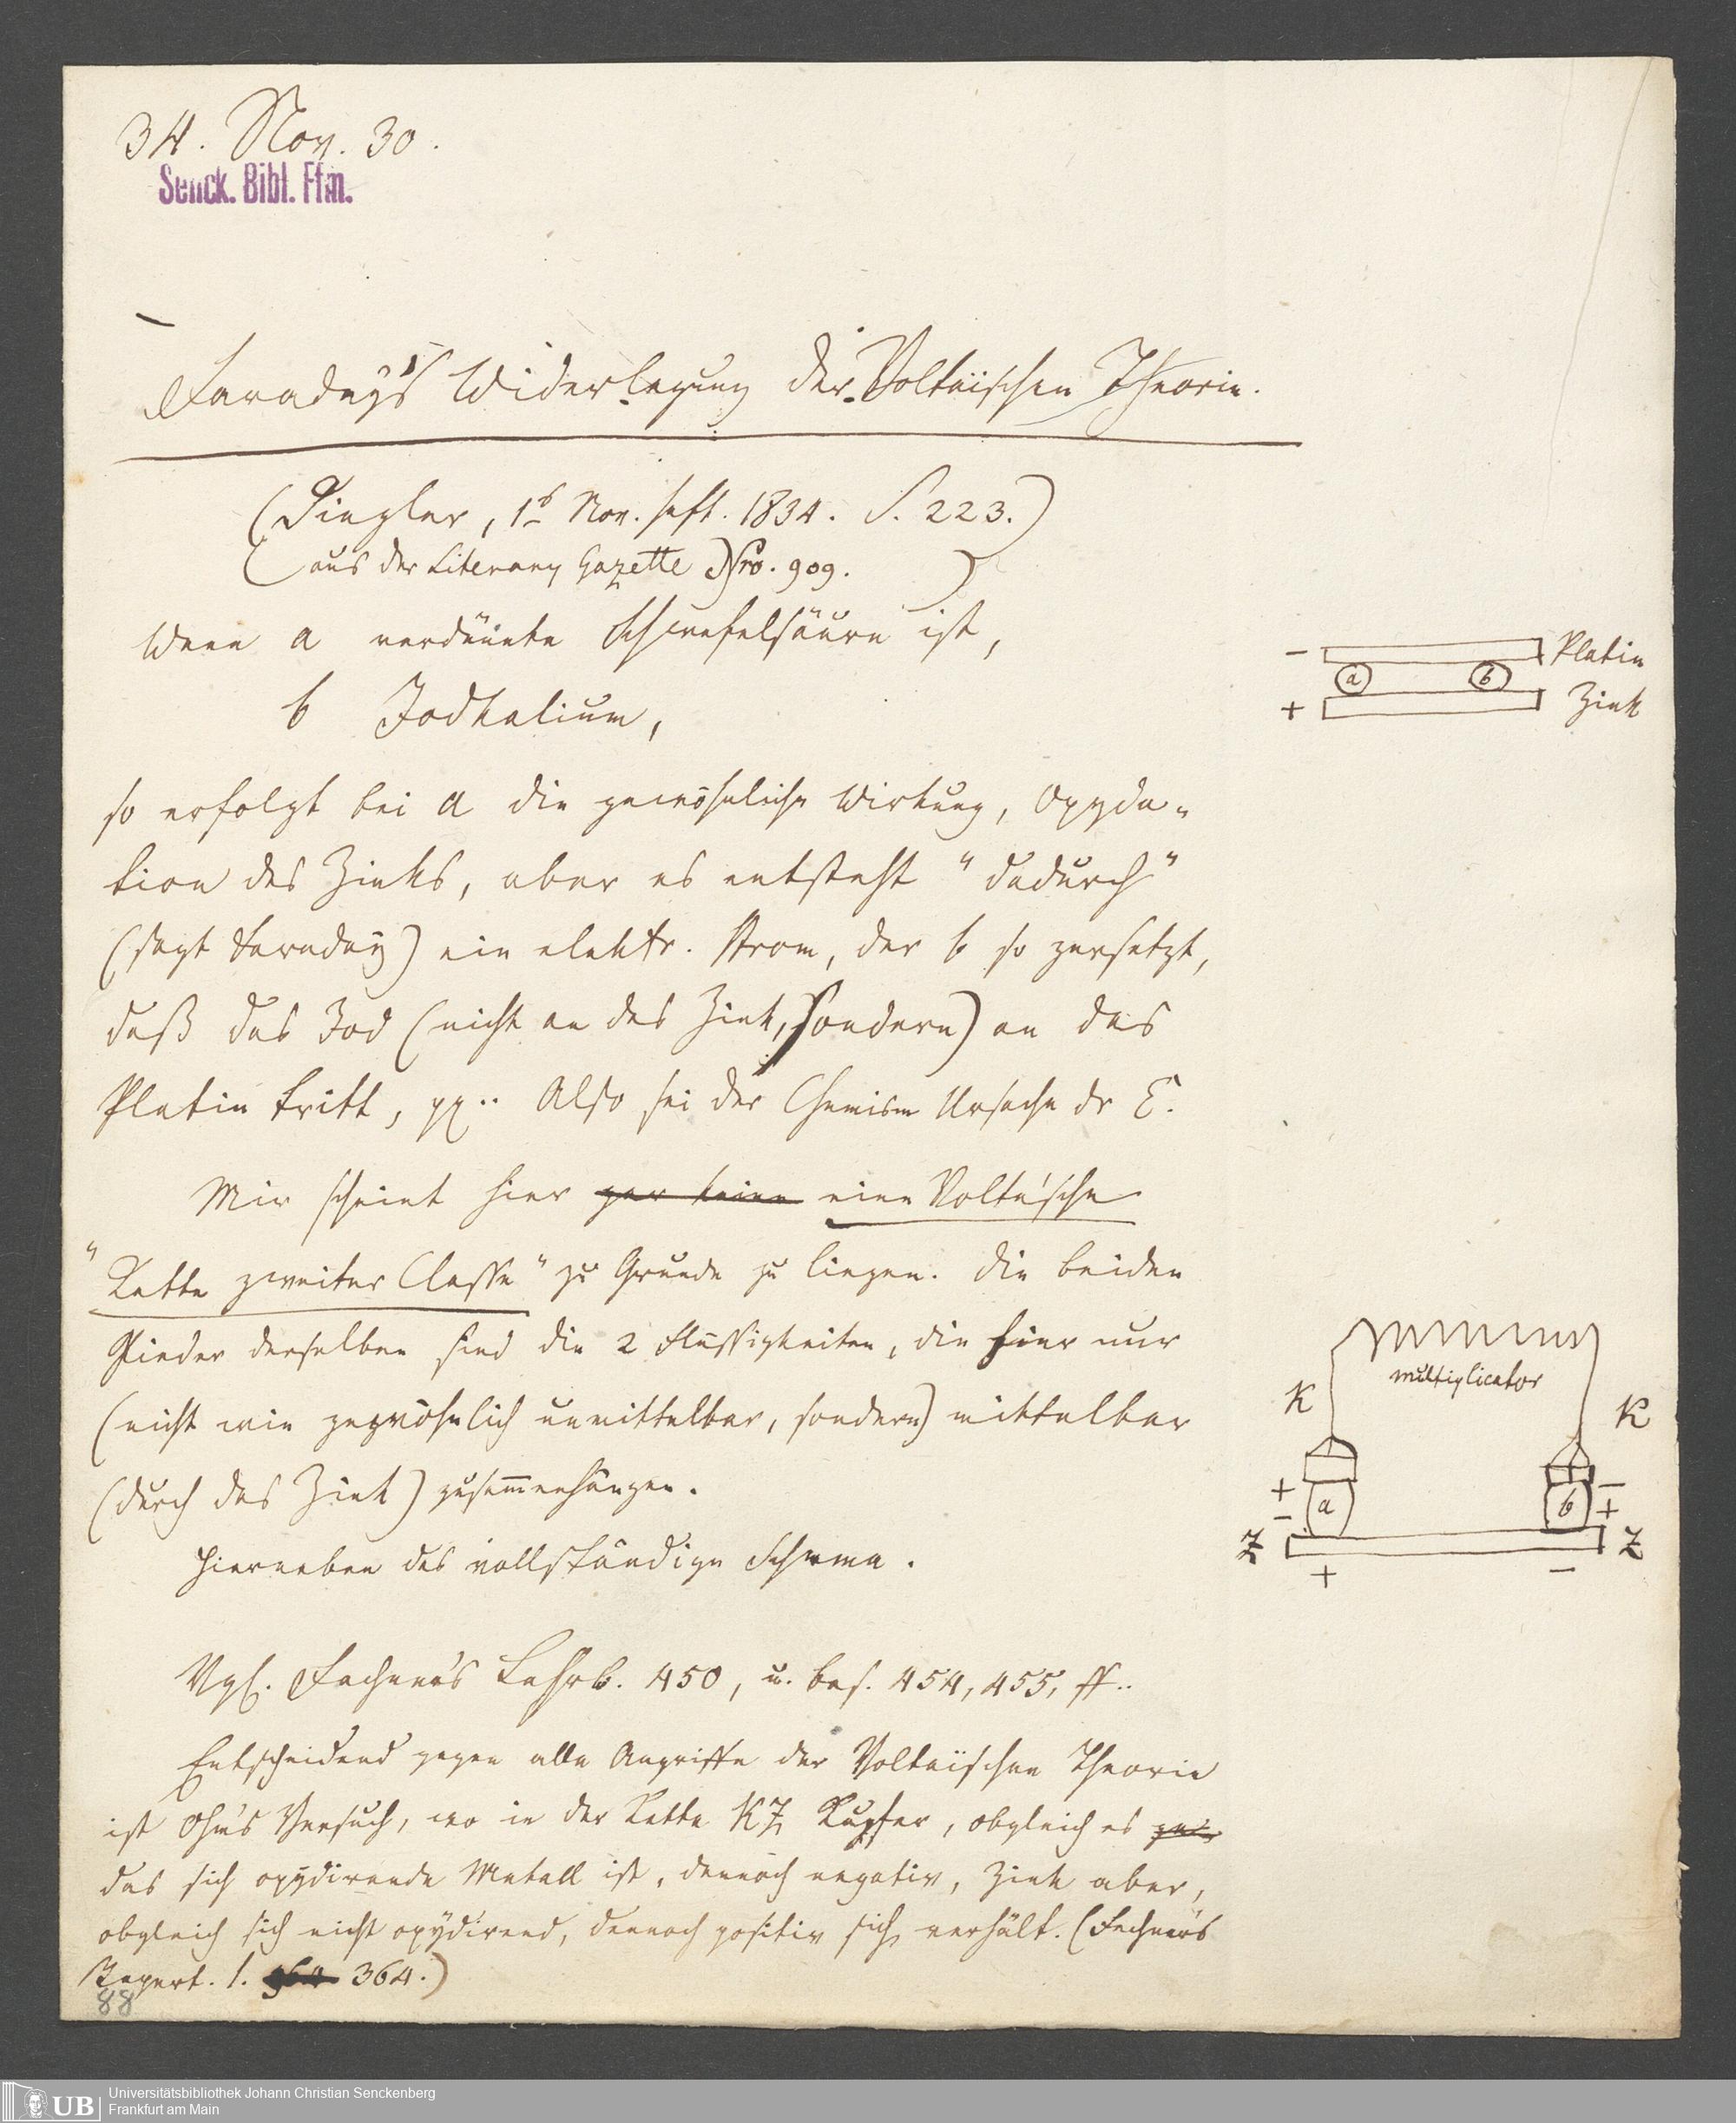 34. Nov. 30.
Senck. Bibl. Ffm.
Faraday's Widerlegung der Voltaischen Theorie.
(Dingler, 1s Nov. heft. 1834. S. 223.)
(aus der Literary Gazette Nro. 909.)
Wenn a verdünnte Schwefelsäure ist,
b Jodkalium,
− Platin
a b
+ Zink
so erfolgt bei a die gewöhnliche Wirkung, Oxyda-
tion des Zinks, aber es entsteht "dadurch"
(sagt Faraday) ein elektr. Strom, der b so zersetzt,
daß das Jod (nicht an das Zink, sondern) an das
Platin tritt, pp.. Also sei der Chemism Ursache dr E.
Mir scheint hier gar keine eine Volta'sche
"Kette zweiter Classe" zu Grunde zu liegen. Die beiden
Glieder derselben sind die 2 Flüssigkeiten, die hier nur
(nicht wie gewöhnlich unmittelbar, sondern) mittelbar
(durch das Zink) zusammenhängen.
Hierneben das vollständige Schema.
multiplicator
K K
+ a − b − +
Z Z
+ −
Vgl. Fechner's Lehrb. 450, u. bes. 454, 455, ff..
Entscheidend gegen alle Angriffe der Voltaischen Theorie
ist Ohm's Versuch, wo in der Kette KZ Kupfer, obgleich es
das sich oxydirende Metall ist, dennoch negativ, Zink aber,
obgleich sich nicht oxydirend, dennoch positiv sich verhält. (Fechner's
Repert. 1. 364 364.)
88
UB
Universitätsbibliothek Johann Christian Senckenberg
Frankfurt am Main